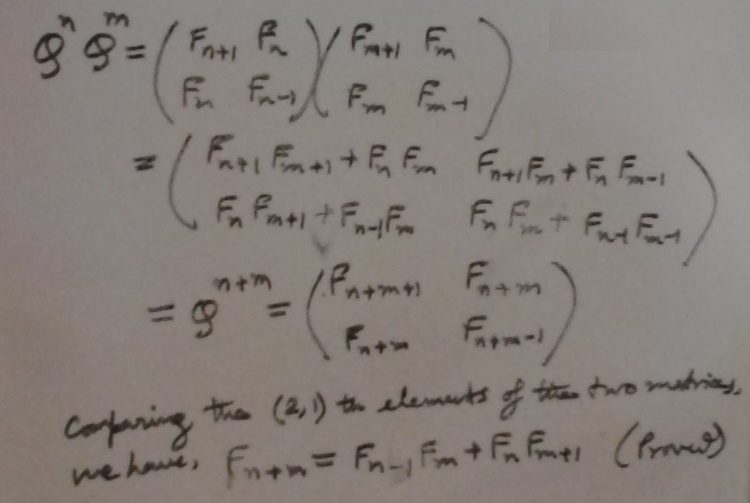 Q^n Q^m = ( F_{n+1} F_n ) ( F_{m+1} F_m )
( F_n F_{n-1} ) ( F_m F_{m-1} )
= ( F_{n+1} F_{m+1} + F_n F_m F_{n+1} F_m + F_n F_{m-1} )
( F_n F_{m+1} + F_{n-1} F_m F_n F_m + F_{n-1} F_{m-1} )
= Q^{n+m} = ( F_{n+m+1} F_{n+m} )
( F_{n+m} F_{n+m-1} )
Comparing the (2,1) th elements of the two metrices,
we have, F_{n+m} = F_{n-1} F_m + F_n F_{m+1} (Proved)